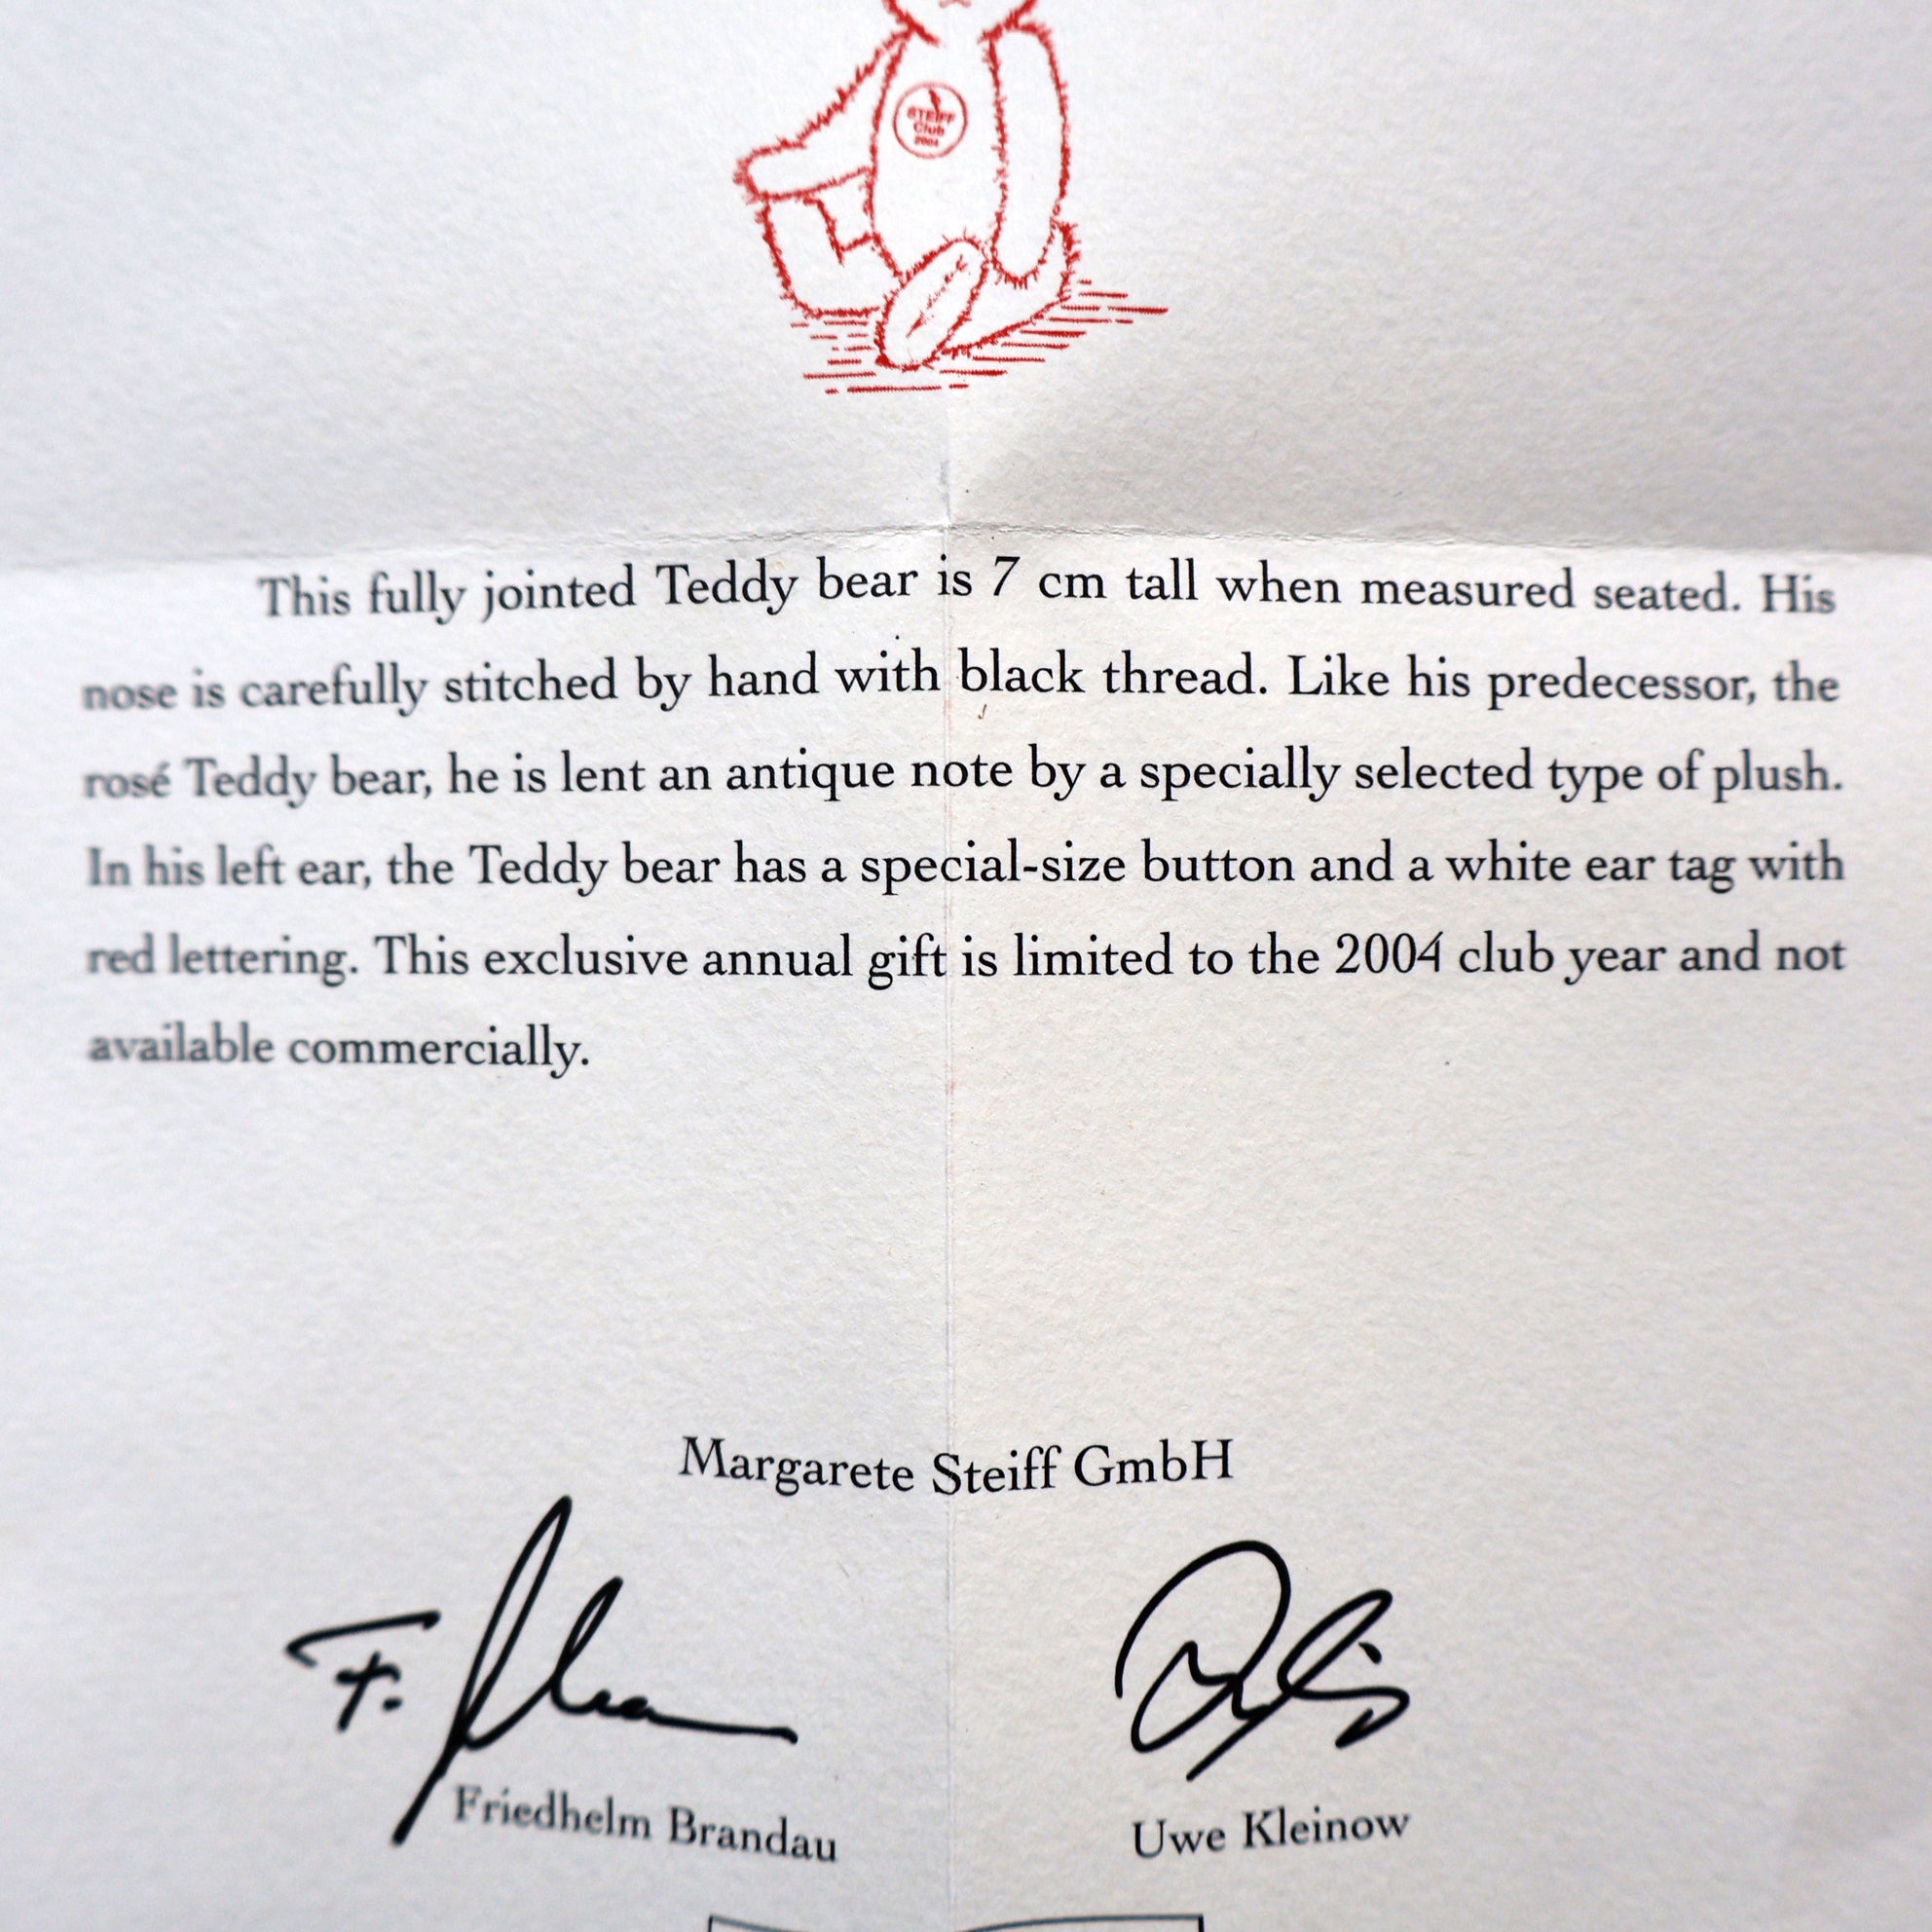 STEIFF
Club
2004
This fully jointed Teddy bear is 7 cm tall when measured seated. His
nose is carefully stitched by hand with black thread. Like his predecessor, the
rosé Teddy bear, he is lent an antique note by a specially selected type of plush.
In his left ear, the Teddy bear has a special-size button and a white ear tag with
red lettering. This exclusive annual gift is limited to the 2004 club year and not
available commercially.
Margarete Steiff GmbH
Friedhelm Brandau
Uwe Kleinow